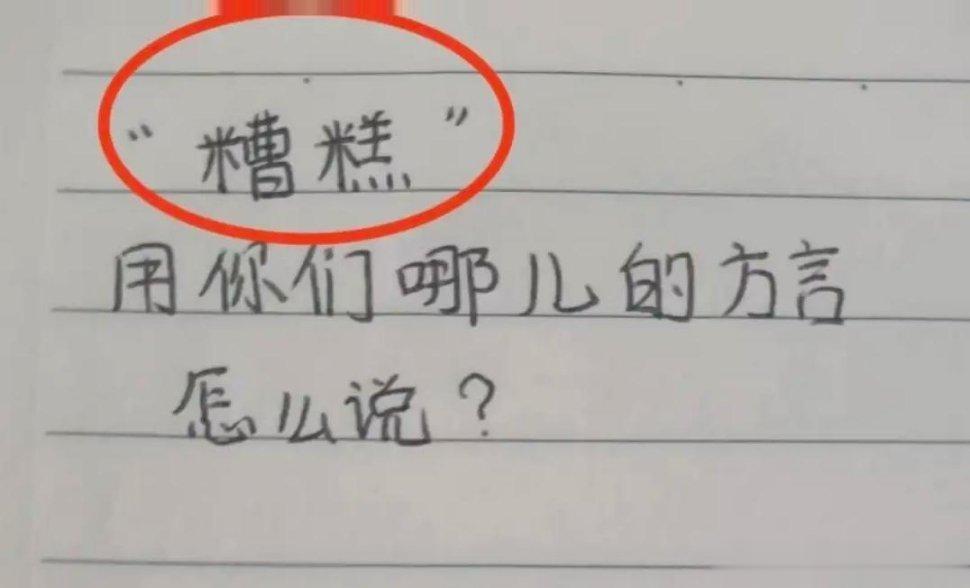 “糟糕”
用你们哪儿的方言
怎么说？